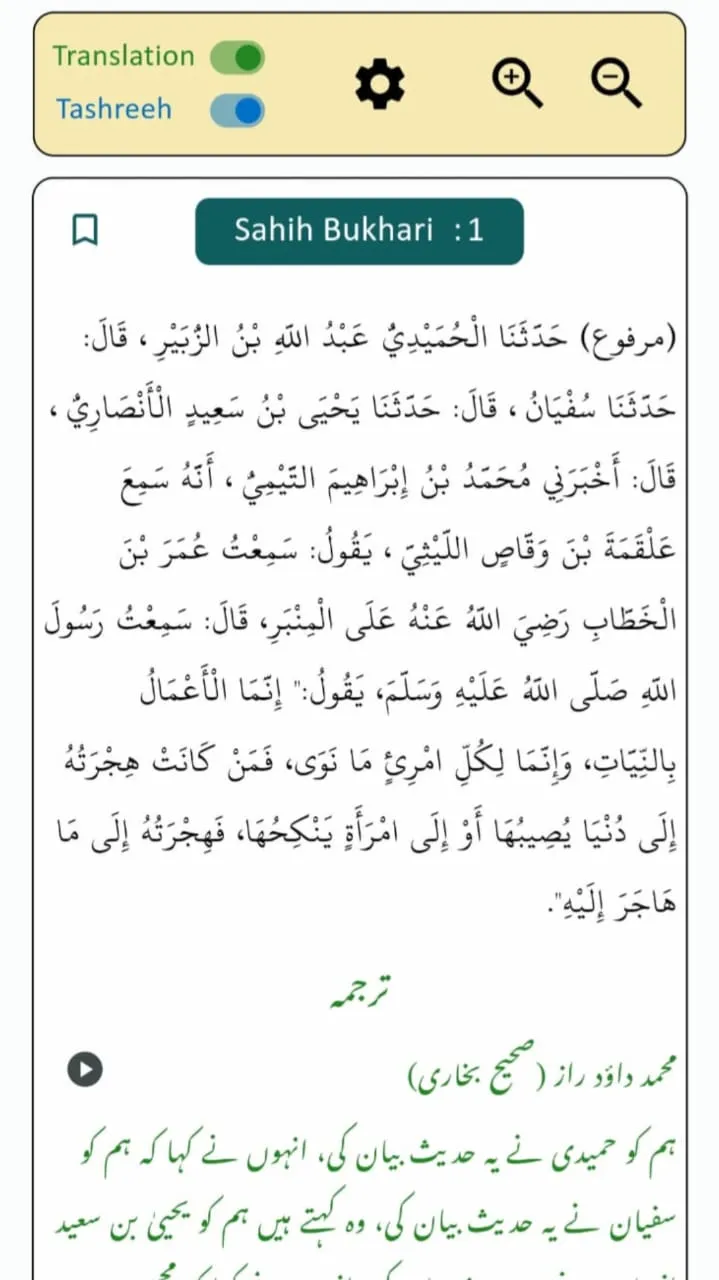 Translation
Tashreeh
Sahih Bukhari : 1
(مرفوع) حَدَّثَنَا الْحُمَيْدِيُّ عَبْدُ اللَّهِ بْنُ الزُّبَيْرِ ، قَالَ:
حَدَّثَنَا سُفْيَانُ ، قَالَ: حَدَّثَنَا يَحْيَى بْنُ سَعِيدٍ الْأَنْصَارِيُّ ،
قَالَ: أَخْبَرَنِي مُحَمَّدُ بْنُ إِبْرَاهِيمَ التَّيْمِيُّ ، أَنَّهُ سَمِعَ
عَلْقَمَةَ بْنَ وَقَّاصٍ اللَّيْثِيَّ ، يَقُولُ: سَمِعْتُ عُمَرَ بْنَ
الْخَطَّابِ رَضِيَ اللَّهُ عَنْهُ عَلَى الْمِنْبَرِ، قَالَ: سَمِعْتُ رَسُولَ
اللَّهِ صَلَّى اللَّهُ عَلَيْهِ وَسَلَّمَ، يَقُولُ:" إِنَّمَا الْأَعْمَالُ
بِالنِّيَّاتِ، وَإِنَّمَا لِكُلِّ امْرِئٍ مَا نَوَى، فَمَنْ كَانَتْ هِجْرَتُهُ
إِلَى دُنْيَا يُصِيبُهَا أَوْ إِلَى امْرَأَةٍ يَنْكِحُهَا، فَهِجْرَتُهُ إِلَى مَا
هَاجَرَ إِلَيْهِ".
ترجمہ
محمد داؤد راز (صحیح بخاری)
ہم کو حمیدی نے یہ حدیث بیان کی، انہوں نے کہا کہ ہم کو
سفیان نے یہ حدیث بیان کی، وہ کہتے ہیں ہم کو یحییٰ بن سعید